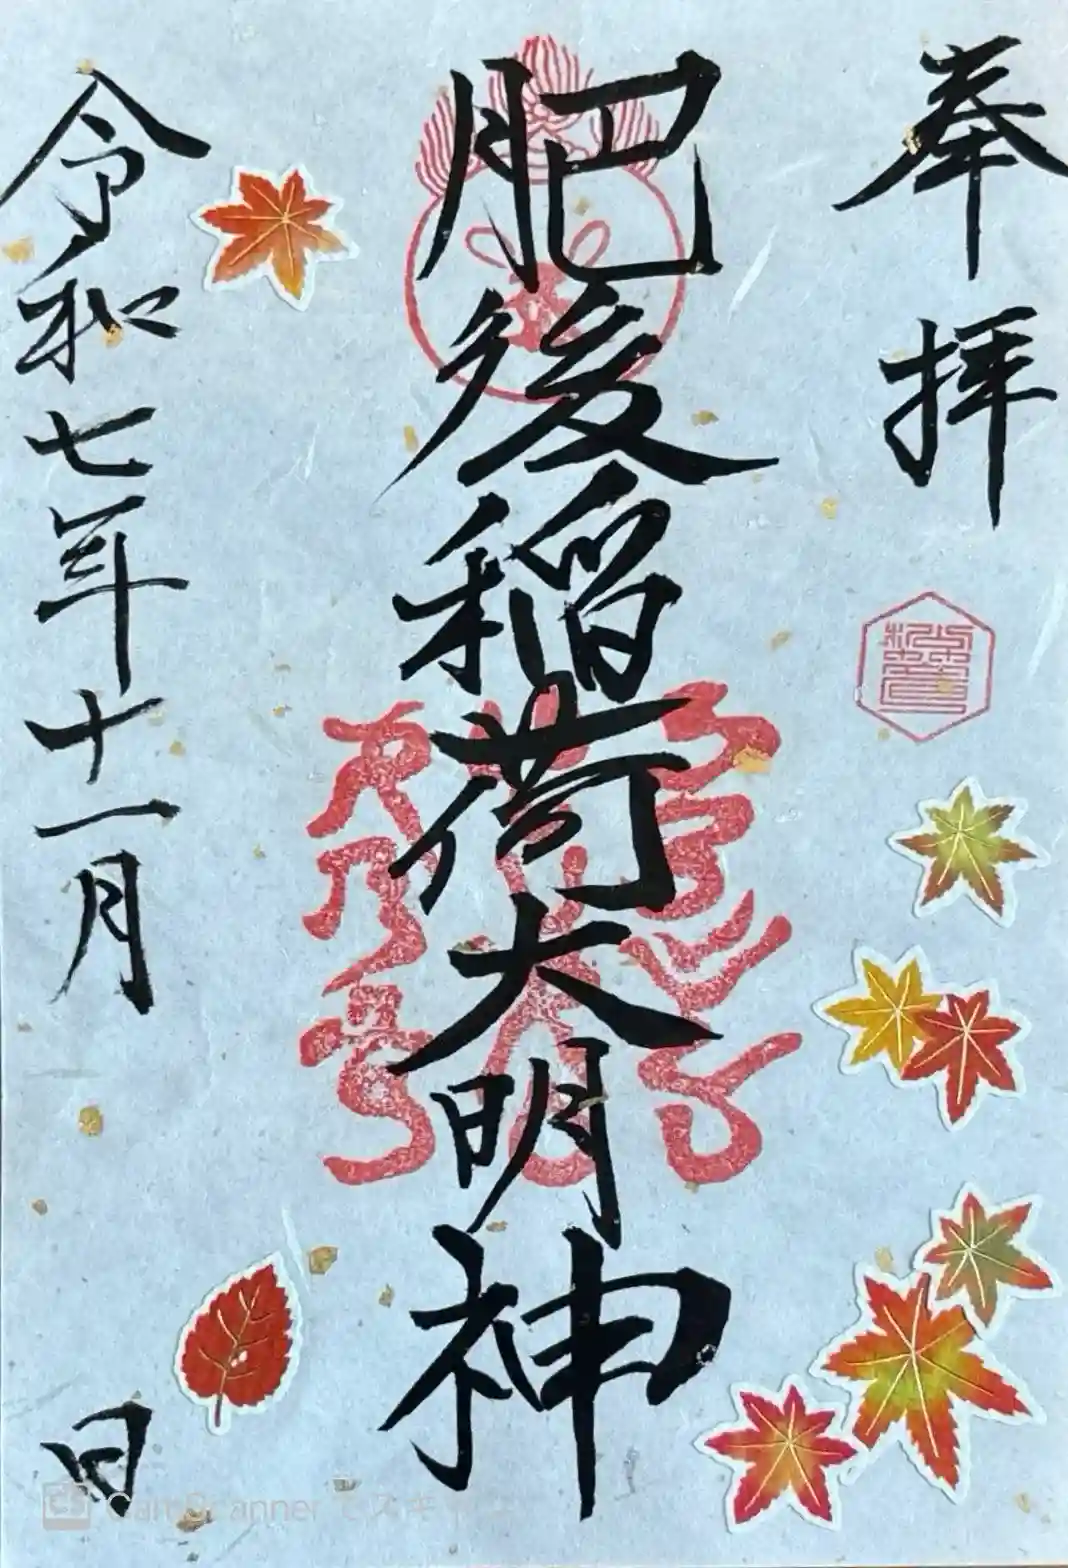 奉拝
肥後稲荷大明神
令和七年十一月 日
CamScanner でスキャン